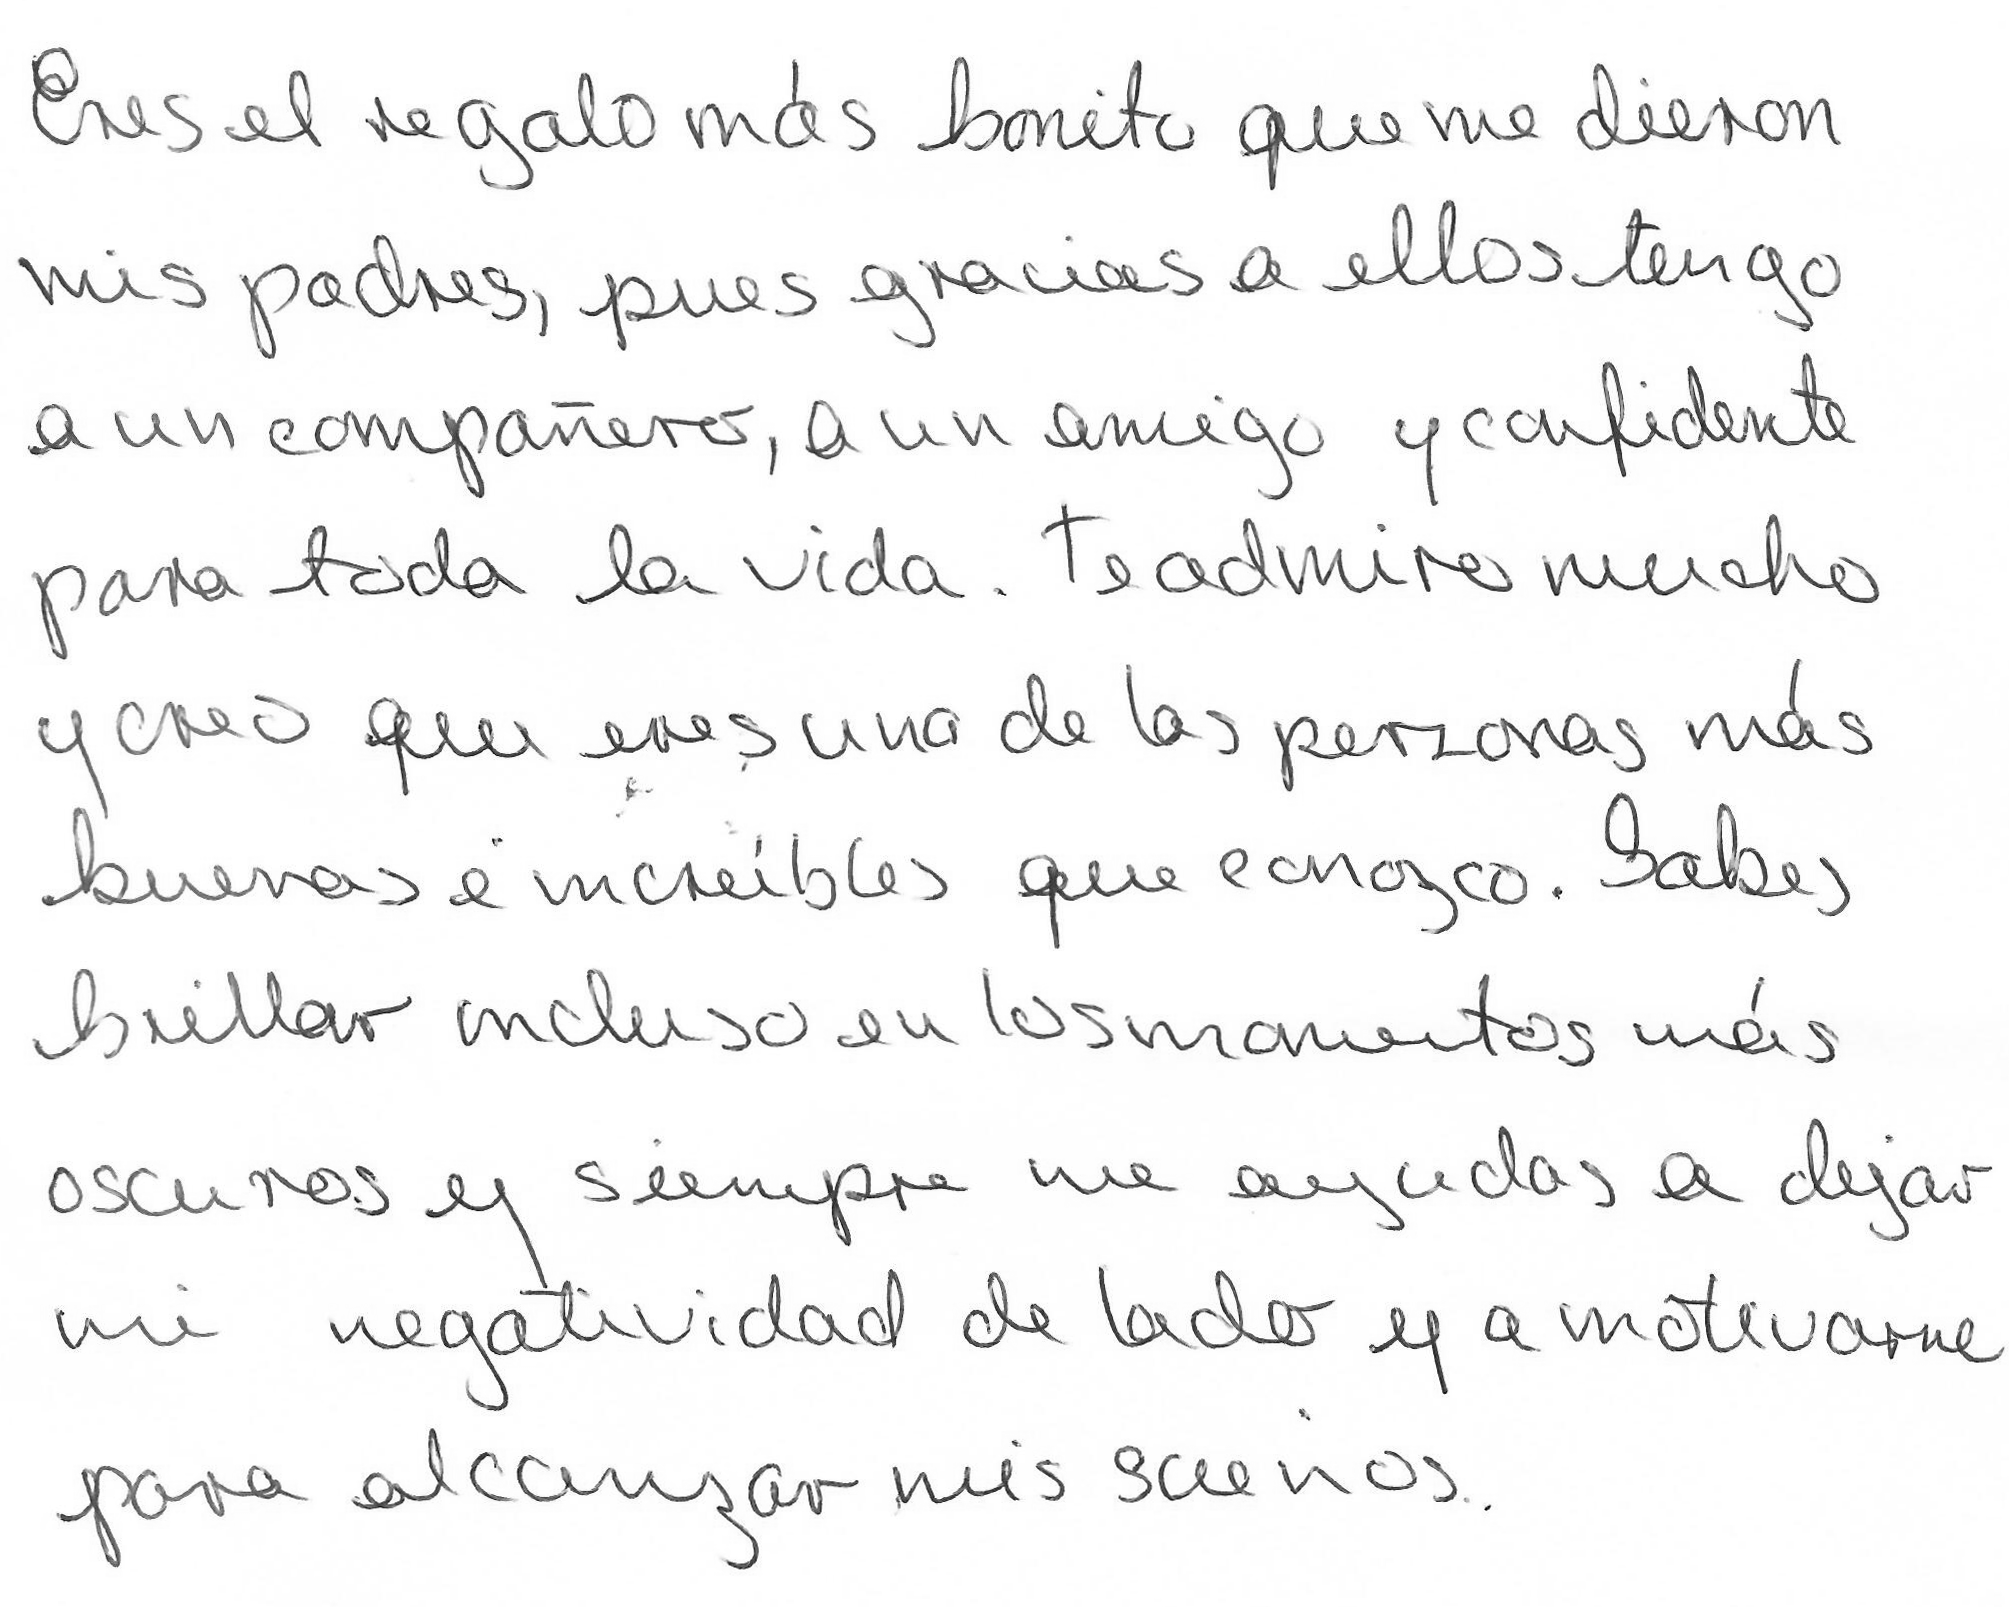 Eres el regalo más bonito que me dieron
mis padres, pues gracias a ellos tengo
a un compañero, a un amigo y confidente
para toda la vida. Te admiro mucho
y creo que eres una de las personas más
buenas e increíbles que conozco. Sabes
brillar incluso en los momentos más
oscuros y siempre me ayudas a dejar
mi negatividad de lado y a motivarme
para alcanzar mis sueños.